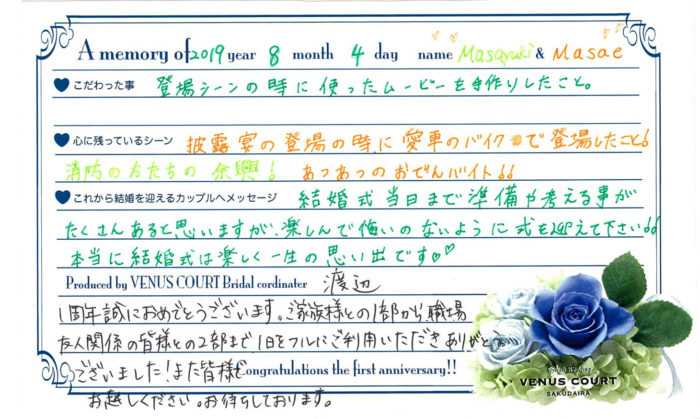 A memory of 2019 year 8 month 4 day name Masayuki & Masae
こだわった事 登場シーンの時に使ったムービーを手作りしたこと。
心に残っているシーン 披露宴の登場の時に愛車のバイクで登場したこと!
消防の方たちの余興! あつあつのおでんバイト!!
これから結婚を迎えるカップルへメッセージ 結婚式当日まで準備や考える事が
たくさんあると思いますが、楽しんで悔いのないように式を迎えて下さい!!
本当に結婚式は楽しく一生の思い出です♡♡
Produced by VENUS COURT Bridal cordinater 渡辺
1周年誠におめでとうございます。ご家族様との1部から職場
友人関係の皆様との2部まで1日をフルにご利用いただきありがとう
ございました!また皆様で Congratulations the first anniversary!!
お越しください。お待ちしております。
VENUS COURT
SAKUDAIRA